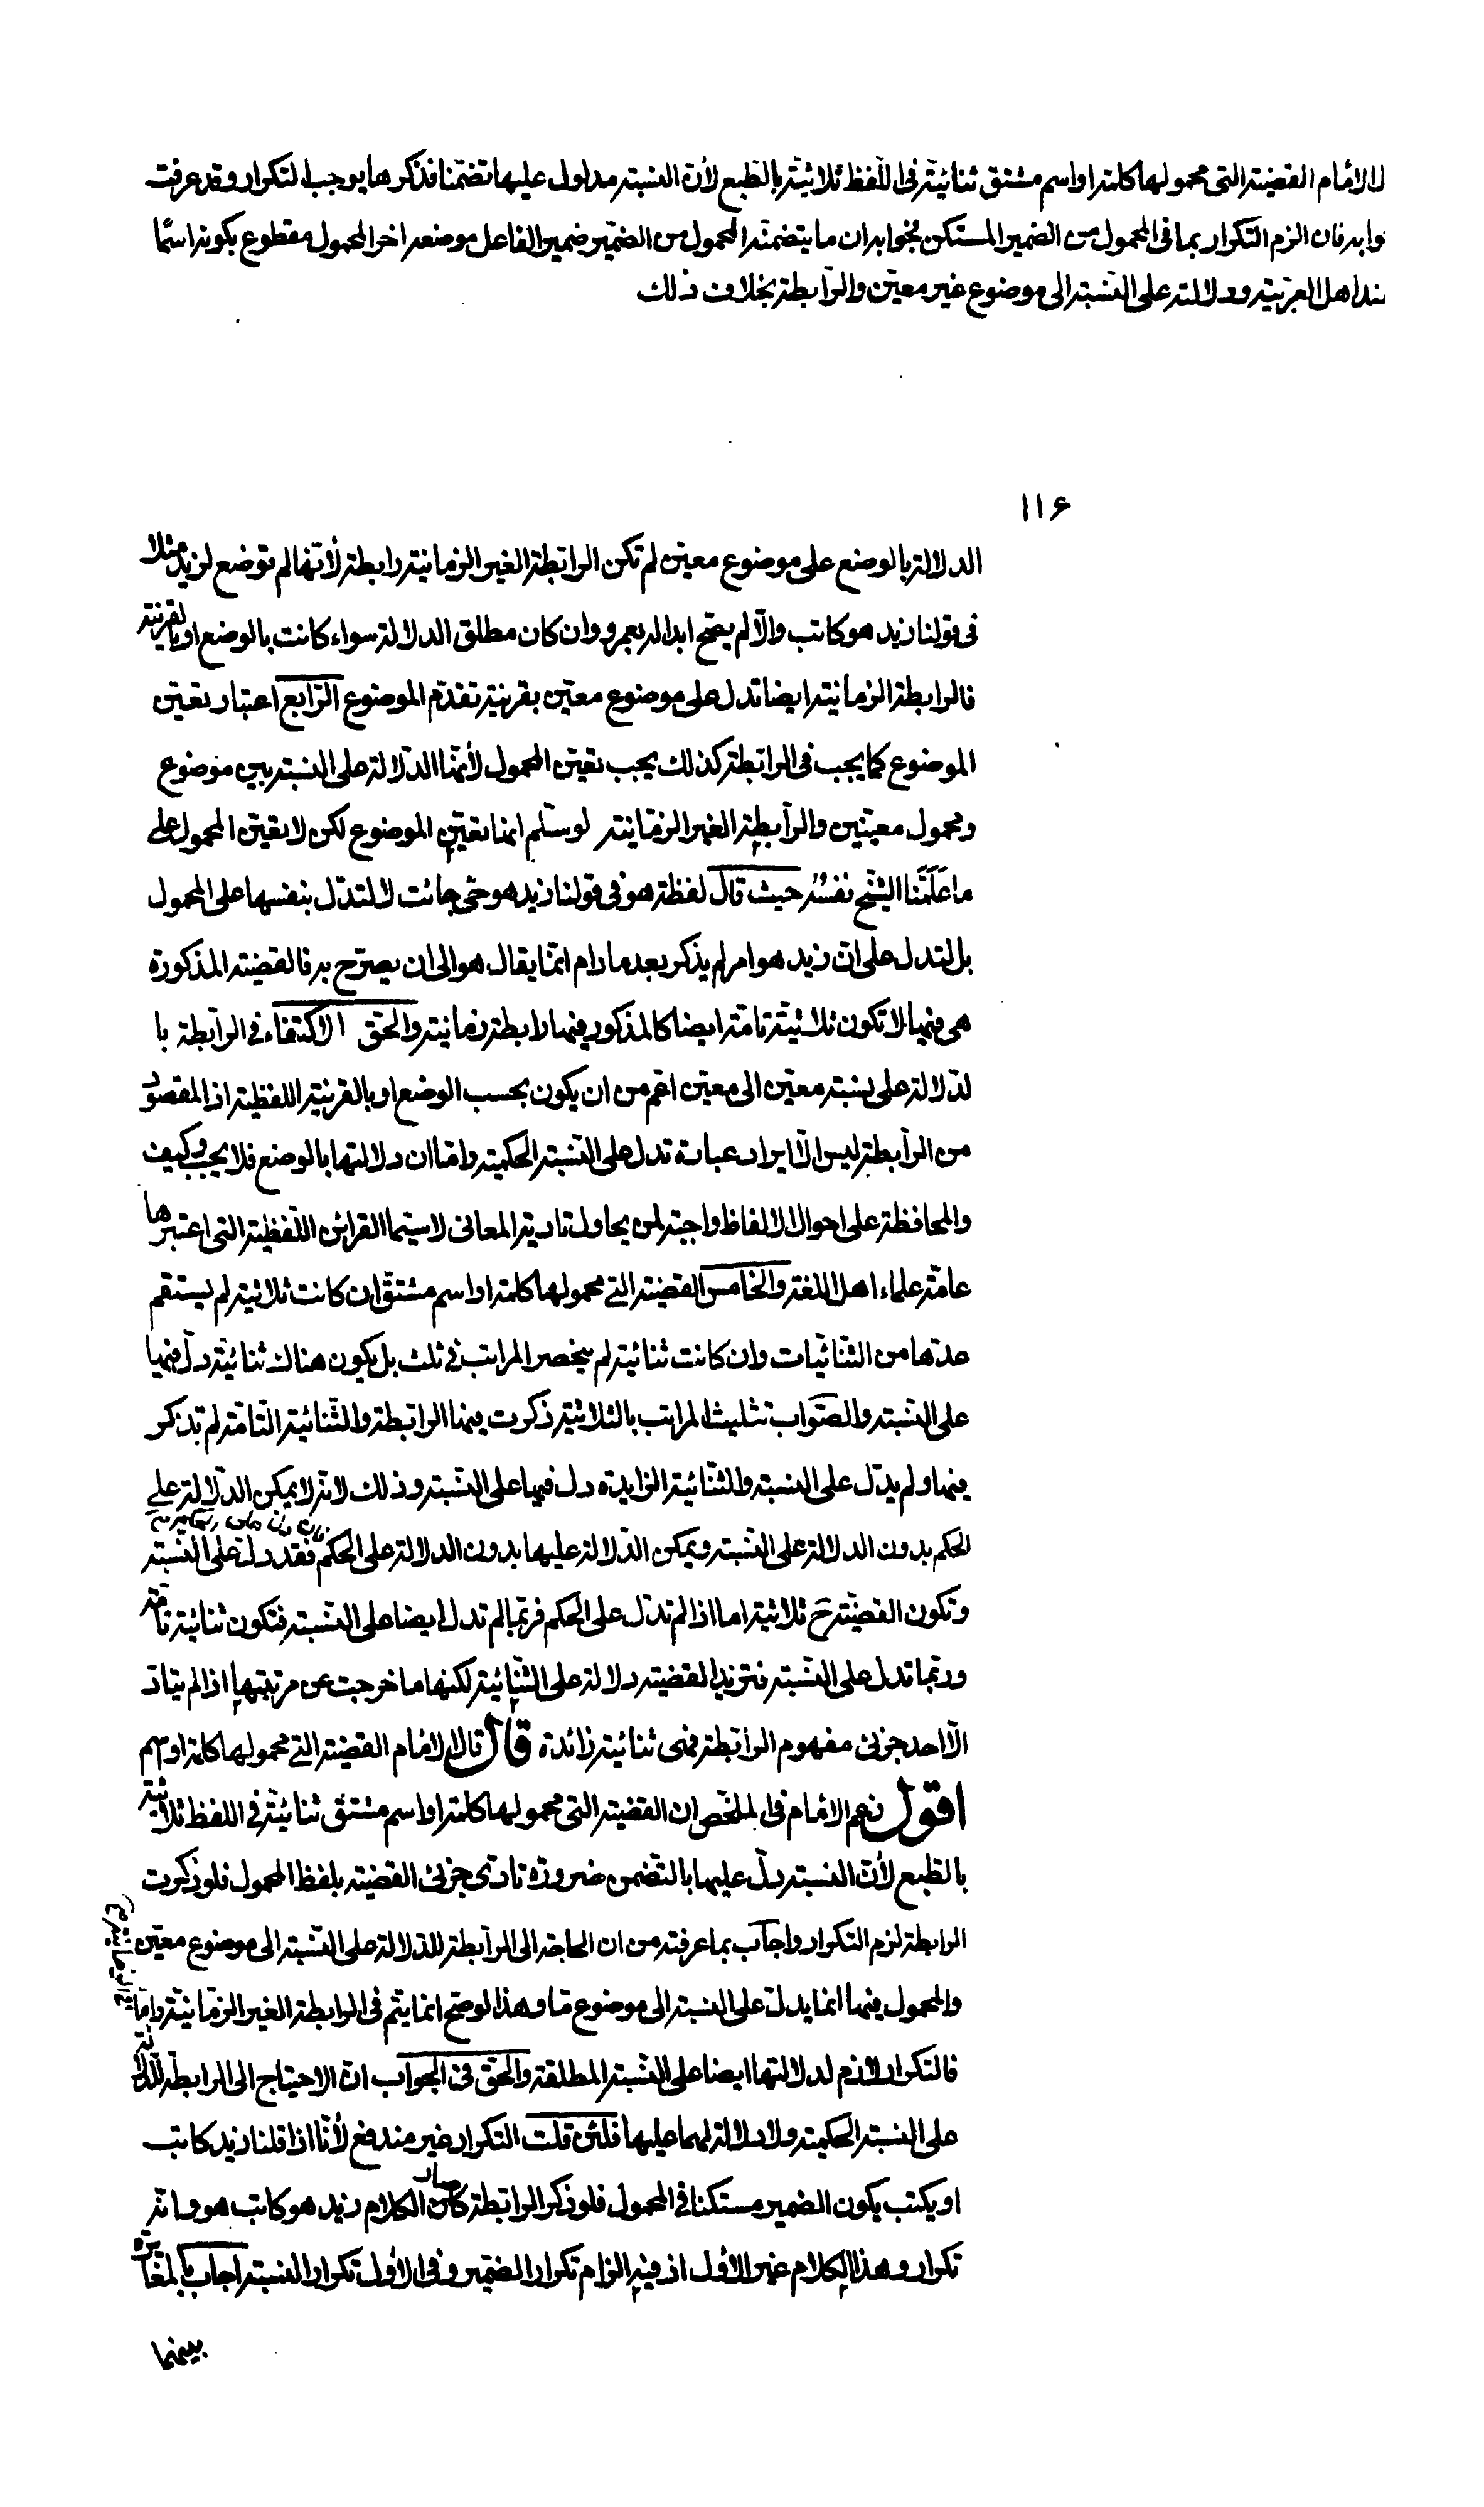 ل الامام القضية التى محمولها كلمة او اسم مشتق ثنائية فى اللفظ ثلاثية بالطبع لأن النسبة مدلول عليها تضمنا فذكرها يوجب التكرار وقد عرفت
وابه فان الزم التكرار بما فى المحمول من الضمير المستكن فجوابه ان ما يتضمنه المحمول من الضمير ضمير الفاعل موضعه اخر المحمول مقطوع بكونه اسمًا
ند اهل العربية ودلالته على النسبة الى موضوع غير معين والرابطة بخلاف ذلك
١١۶
الدلالة بالوضع على موضوع معين لم تكن الرابطة الغير الزمانية رابطة لأنها لم توضع لزيد مثلا
فى قولنا زيد هو كاتب والّا لم يصح ابداله بعمرو وان كان مطلق الدلالة سواء كانت بالوضع او بالقرينة
فالرابطة الزمانية ايضا تدل على موضوع معين بقرينة تقدم الموضوع الرابع اعتبار تعين
الموضوع كما يجب فى الرابطة كذلك يجب تعين المحمول لأنها الدلالة على النسبة بين موضوع
ومحمول معينين والرابطة الغير الزمانية لو سلم انها تعين الموضوع لكن لا تعين المحمول على
ما علمنا الشيخ نفسه حيث قال لفظة هو فى قولنا زيد هو حى جائت لا لتدل بنفسها على المحمول
بل لتدل على ان زيد هو امر لم يذكر بعد ما دام انما يقال هو الى ان يصرح به فالقضية المذكورة
هى فيها لا تكون ثلاثية تامة ايضا كالمذكور فيها رابطة زمانية والحق الاكتفاء فى الرابطة با
لدلالة على نسبة معين الى معين اعم من ان يكون بحسب الوضع او بالقرينة اللفظية اذ المقصود
من الرابطة ليس الّا ايراد عبارة تدل على النسبة الحكمية واما ان دلالتها بالوضع فلا يجب وكيف
والمحافظة على احوال الالفاظ واجبة لمن يحاول تادية المعانى لا سيما القرائن اللفظية التى اعتبرها
عامة علماء اهل اللغة والخامس القضية التى محمولها كلمة او اسم مشتق ان كانت ثلاثية لم يستقم
عدها من الثنائيات وان كانت ثنائية لم ينحصر المراتب فى ثلث بل يكون هناك ثنائية دل فيها
على النسبة والصواب تثليث المراتب بالثلاثية ذكرت فيها الرابطة والثنائية التامة لم تذكر
فيها ولم يدل على النسبة والثنائية الزايدة دل فيها على النسبة وذلك لانه لا يمكن الدلالة على
الحكم بدون الدلالة على النسبة ويمكن الدلالة عليها بدون الدلالة على الحكم فقد دل على النسبة
وتكون القضية ح ثلاثية اما اذا لم تدل على الحكم فربما لم تدل ايضا على النسبة فتكون ثنائية تامة
وربما تدل على النسبة فتزيد القضية دلالة على الثنائية لكنها ما خرجت عن مرتبتها اذا لم يتاد
الّا احد جزئى مفهوم الرابطة فهى ثنائية زائدة قال قال الامام القضية التى محمولها كلمة او اسم
اقول زعم الامام فى الملخص ان القضية التى محمولها كلمة او اسم مشتق ثنائية فى اللفظ ثلاثية
بالطبع لأن النسبة دل عليها بالتضمن ضرورة تادى جزئى القضية بلفظ المحمول فلو ذكرت
الرابطة لزم التكرار واجاب بما عرفته من ان الحاجة الى الرابطة للدلالة على النسبة الى موضوع معين
والمحمول فيها انما يدل على النسبة الى موضوع ما وهذا لو صح انما يتم فى الرابطة الغير الزمانية واما
فالتكرار لازم لدلالتها ايضا على النسبة المطلقة والحق فى الجواب ان الاحتياج الى الرابطة للدلالة
على النسبة الحكمية ولا دلالة لهما عليها فلئن قلت التكرار غير مندفع لأنا اذا قلنا زيد كاتب
او يكتب يكون الضمير مستكنا فى المحمول فلو ذكر الرابطة كان صار الكلام زيد هو كاتب هو وانه
تكرار وهذا الكلام غير الاول اذ فيه الزام تكرار الضمير وفى الاول تكرار النسبة اجاب بالمغايرة
بينهما